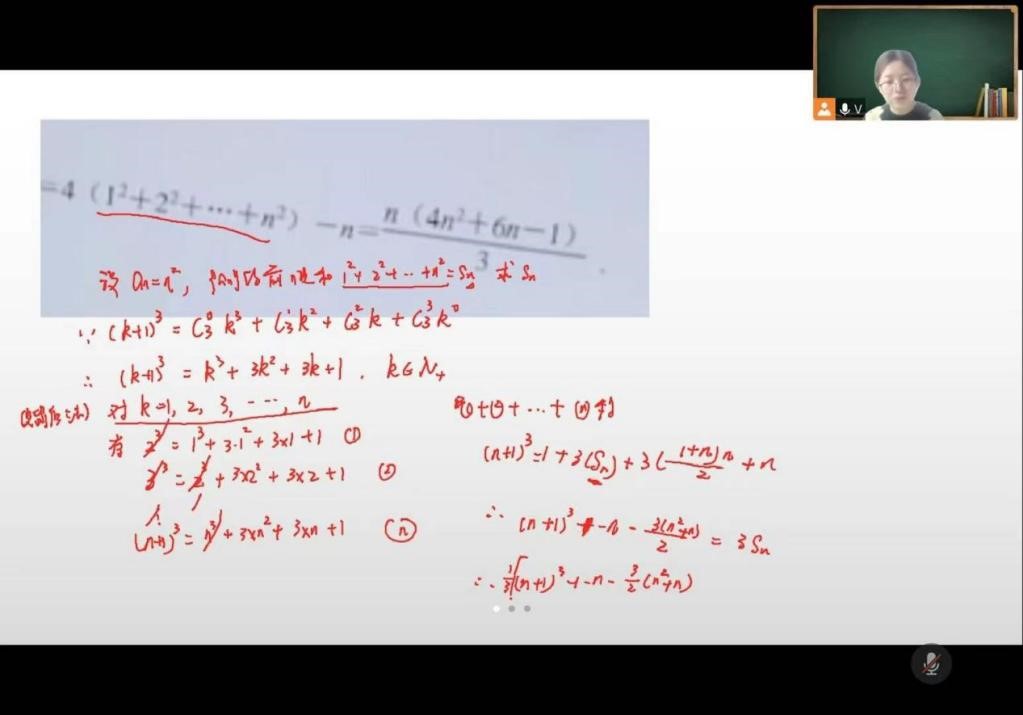 V
=4 (1²+2²+···+n²) -n= n (4n²+6n-1) / 3 .
设 an=n², {an}的前n项和 1²+2²+···+n²=Sn 求 Sn
∵ (k+1)³ = C₃⁰k³ + C₃¹k² + C₃²k + C₃³k⁰
∴ (k+1)³ = k³ + 3k² + 3k+1 . k∈N₊
对 k=1, 2, 3, ···, n
有 2³ = 1³ + 3·1² + 3×1 + 1 ①
3³ = 2³ + 3×2² + 3×2 + 1 ②
(n+1)³ = n³ + 3×n² + 3×n + 1 ⓝ
①+②+ ··· + ⓝ 得
(n+1)³ = 1 + 3(Sn) + 3( (1+n)n / 2 ) + n
∴ (n+1)³ - 1 - n - 3(n²+n) / 2 = 3Sn
∴ 1/3 [(n+1)³ - 1 - n - 3/2 (n²+n)